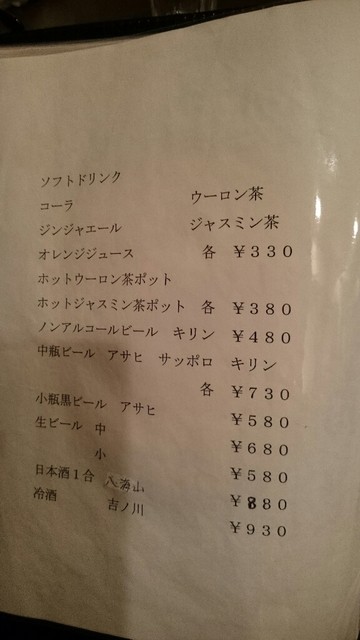 ソフトドリンク
コーラ ウーロン茶
ジンジャエール ジャスミン茶
オレンジジュース 各 ￥３３０
ホットウーロン茶ポット
ホットジャスミン茶ポット 各 ￥３８０
ノンアルコールビール キリン ￥４８０
中瓶ビール アサヒ サッポロ キリン
各 ￥７３０
小瓶黒ビール アサヒ ￥５８０
生ビール 中 ￥６８０
小 ￥５８０
日本酒１合 山 ￥８８０
冷酒 吉ノ川 ￥９３０